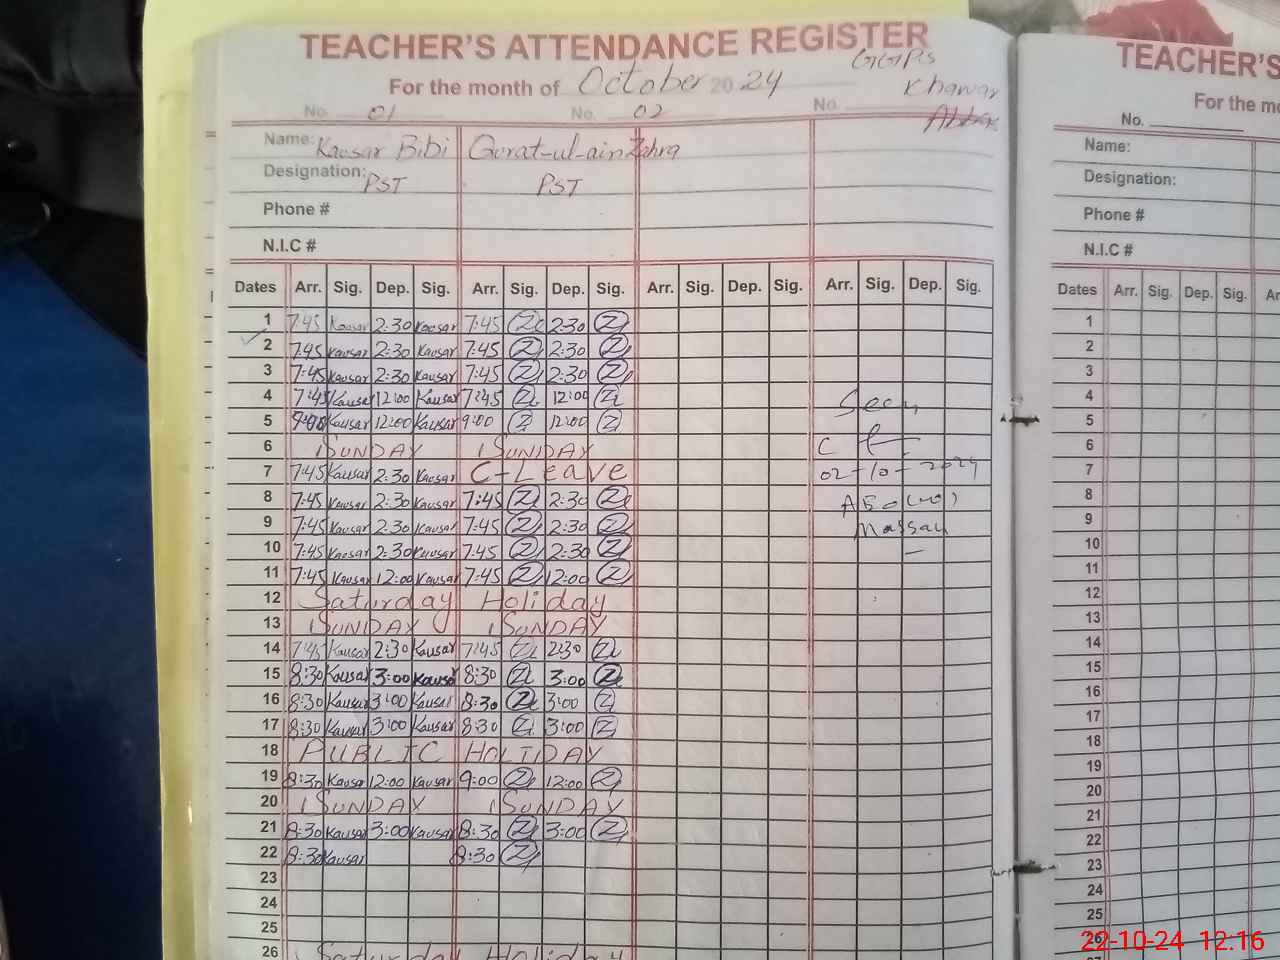 TEACHER'S ATTENDANCE REGISTER
GGPS
For the month of October 2024
Khawar
No. 01 No. 02 No.
Name: Kausar Bibi Qurat-ul-ain Zahra
Designation: PST PST
Phone #
N.I.C #
Dates Arr. Sig. Dep. Sig. Arr. Sig. Dep. Sig. Arr. Sig. Dep. Sig. Arr. Sig. Dep. Sig.
1 7:45 Kausar 2:30 Kausar 7:45 Z 2:30 Z
2 7:45 Kausar 2:30 Kausar 7:45 Z 2:30 Z
3 7:45 Kausar 2:30 Kausar 7:45 Z 2:30 Z
4 7:45 Kausar 12:00 Kausar 7:45 Z 12:00 Z
Seen
5 9:00 Kausar 12:00 Kausar 9:00 Z 12:00 Z
6 SUNDAY SUNDAY
7 7:45 Kausar 2:30 Kausar C-Leave
02-10-2024
8 7:45 Kausar 2:30 Kausar 7:45 Z 2:30 Z
9 7:45 Kausar 2:30 Kausar 7:45 Z 2:30 Z
10 7:45 Kausar 2:30 Kausar 7:45 Z 2:30 Z
11 7:45 Kausar 12:00 Kausar 7:45 Z 12:00 Z
12 Saturday Holiday
13 SUNDAY SUNDAY
14 7:45 Kausar 2:30 Kausar 7:45 Z 2:30 Z
15 8:30 Kausar 3:00 Kausar 8:30 Z 3:00 Z
16 8:30 Kausar 3:00 Kausar 8:30 Z 3:00 Z
17 8:30 Kausar 3:00 Kausar 8:30 Z 3:00 Z
18 PUBLIC HOLIDAY
19 8:30 Kausar 12:00 Kausar 9:00 Z 12:00 Z
20 SUNDAY SUNDAY
21 8:30 Kausar 3:00 Kausar 8:30 Z 3:00 Z
22 8:30 Kausar 8:30 Z
23
24
25
26 Saturday Holiday
TEACHER'S
For the mo
No.
Name:
Designation:
Phone #
N.I.C #
Dates Arr. Sig. Dep. Sig. Ar
1
2
3
4
5
6
7
8
9
10
11
12
13
14
15
16
17
18
19
20
21
22
23
24
25
26
22-10-24 12:16